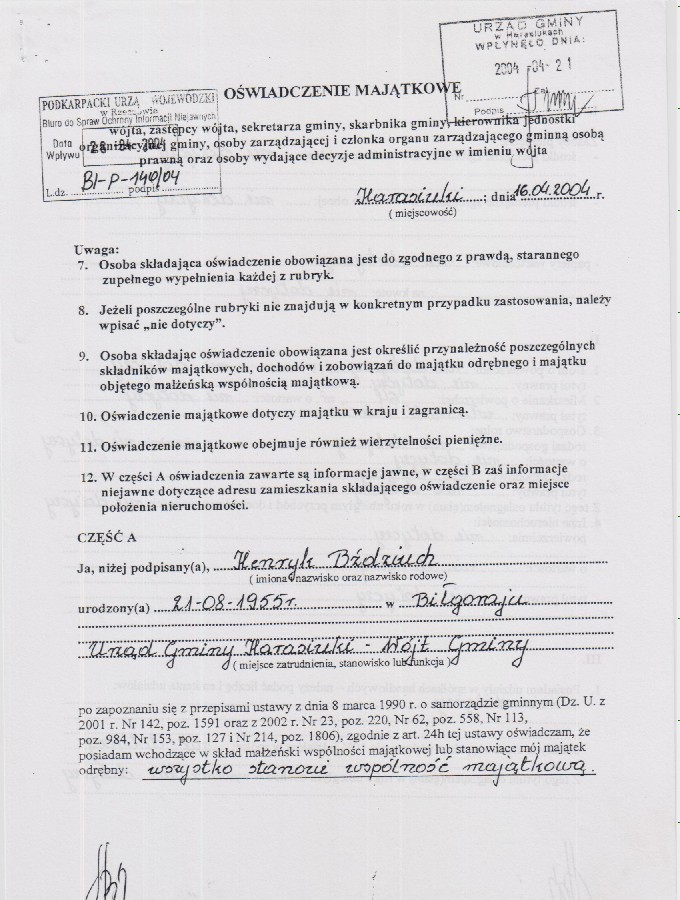 URZĄD GMINY
w Harasiukach
WPŁYNĘŁO DNIA:
2004 -04- 21
Nr
Podpis
OŚWIADCZENIE MAJĄTKOWE
PODKARPACKI URZĄD WOJEWÓDZKI
w Rzeszowie
Biuro do Spraw Ochrony Informacji Niejawnych
Data
Wpływu 28 -04- 2004
L.dz. BI-P-140/04 podpis
wójta, zastępcy wójta, sekretarza gminy, skarbnika gminy, kierownika jednostki
organizacyjnej gminy, osoby zarządzającej i członka organu zarządzającego gminną osobą
prawną oraz osoby wydające decyzje administracyjne w imieniu wójta
Harasiuki ; dnia 16.04.2004 r.
( miejscowość)
Uwaga:
7. Osoba składająca oświadczenie obowiązana jest do zgodnego z prawdą, starannego
zupełnego wypełnienia każdej z rubryk.
8. Jeżeli poszczególne rubryki nie znajdują w konkretnym przypadku zastosowania, należy
wpisać „nie dotyczy”.
9. Osoba składając oświadczenie obowiązana jest określić przynależność poszczególnych
składników majątkowych, dochodów i zobowiązań do majątku odrębnego i majątku
objętego małżeńską wspólnością majątkową.
10. Oświadczenie majątkowe dotyczy majątku w kraju i zagranicą.
11. Oświadczenie majątkowe obejmuje również wierzytelności pieniężne.
12. W części A oświadczenia zawarte są informacje jawne, w części B zaś informacje
niejawne dotyczące adresu zamieszkania składającego oświadczenie oraz miejsce
położenia nieruchomości.
CZĘŚĆ A
Ja, niżej podpisany(a), Henryk Bździuch
( imiona i nazwisko oraz nazwisko rodowe)
urodzony(a) 21-08-1955r. w Biłgoraju
Urząd Gminy Harasiuki - Wójt Gminy
( miejsce zatrudnienia, stanowisko lub funkcja )
po zapoznaniu się z przepisami ustawy z dnia 8 marca 1990 r. o samorządzie gminnym (Dz. U. z
2001 r. Nr 142, poz. 1591 oraz z 2002 r. Nr 23, poz. 220, Nr 62, poz. 558, Nr 113,
poz. 984, Nr 153, poz. 127 i Nr 214, poz. 1806), zgodnie z art. 24h tej ustawy oświadczam, że
posiadam wchodzące w skład małżeński wspólności majątkowej lub stanowiące mój majątek
odrębny: wszystko stanowi wspólność majątkową.